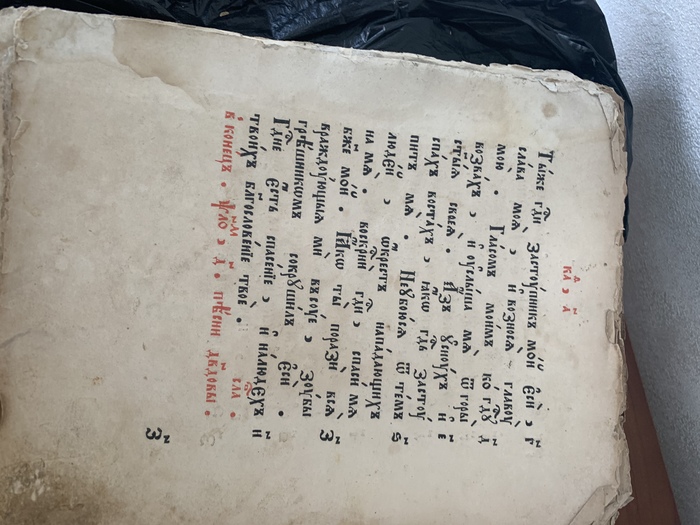 ка҃ , д҃
Ты́же гдⷭ҇и застꙋ́пникъ мо́й єсѝ , г҃
слава моѧ̀ , и҆ возносѧ̀ главꙋ̀
мою̀ . Гла́сомъ мои́мъ ко гдⷭ҇ꙋ д҃
возва́хъ , и҆ оуслы́ша мѧ ѿ горы̀
ст҃ы́ѧ своеѧ̀ . И҆́зъ ꙋснꙋ́хъ и҆ є҃
спа́хъ воста́хъ , ꙗ҆́кѡ гдⷭ҇ь застоу́
питъ мѧ . Не ꙋбою́сѧ ѿ те́мъ ѕ҃
люде́й , ѡ҆́крестъ напа́дающихъ
на мѧ̀ . воскрⷭ҇ни гдⷭ҇и , спаси мѧ
бж҃е мо́й . Ꙗ҆́кѡ ты̀ поразѝ всѧ̀ з҃
враждоу́ющыѧ мѝ всоу́е , зоу́бы
грѣ́шникѡмъ сокрꙋши́лъ єси .
Гдⷭ҇не є҆́сть спасе́нїе , и҆ на лю́дехъ и҃
твои́хъ благослове́нїе твоѐ . сла .
в коне́цъ . ѱло́мъ , д҃ . пѣ́сни дв҃довы .
з҃